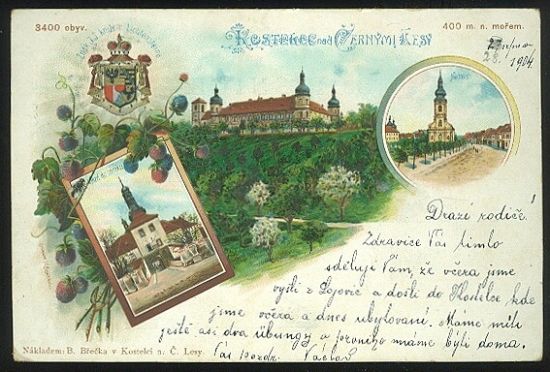 3400 obyv.
400 m. n. mořem.
KOSTELEC nad ČERNÝMI LESY
28. 1904
Drazí rodiče!
Zdravíce Vás tímto
sděluji Vám, že včera jsme
vyšli z Lojovic a došli do Kostelce, kde
jsme včera a dnes ubytovaní. Máme míti
ještě asi dva übungy a prvního máme býti doma.
Vás pozdr. Václav
Nákladem: B. Břečka v Kostelci n. Č. Lesy.